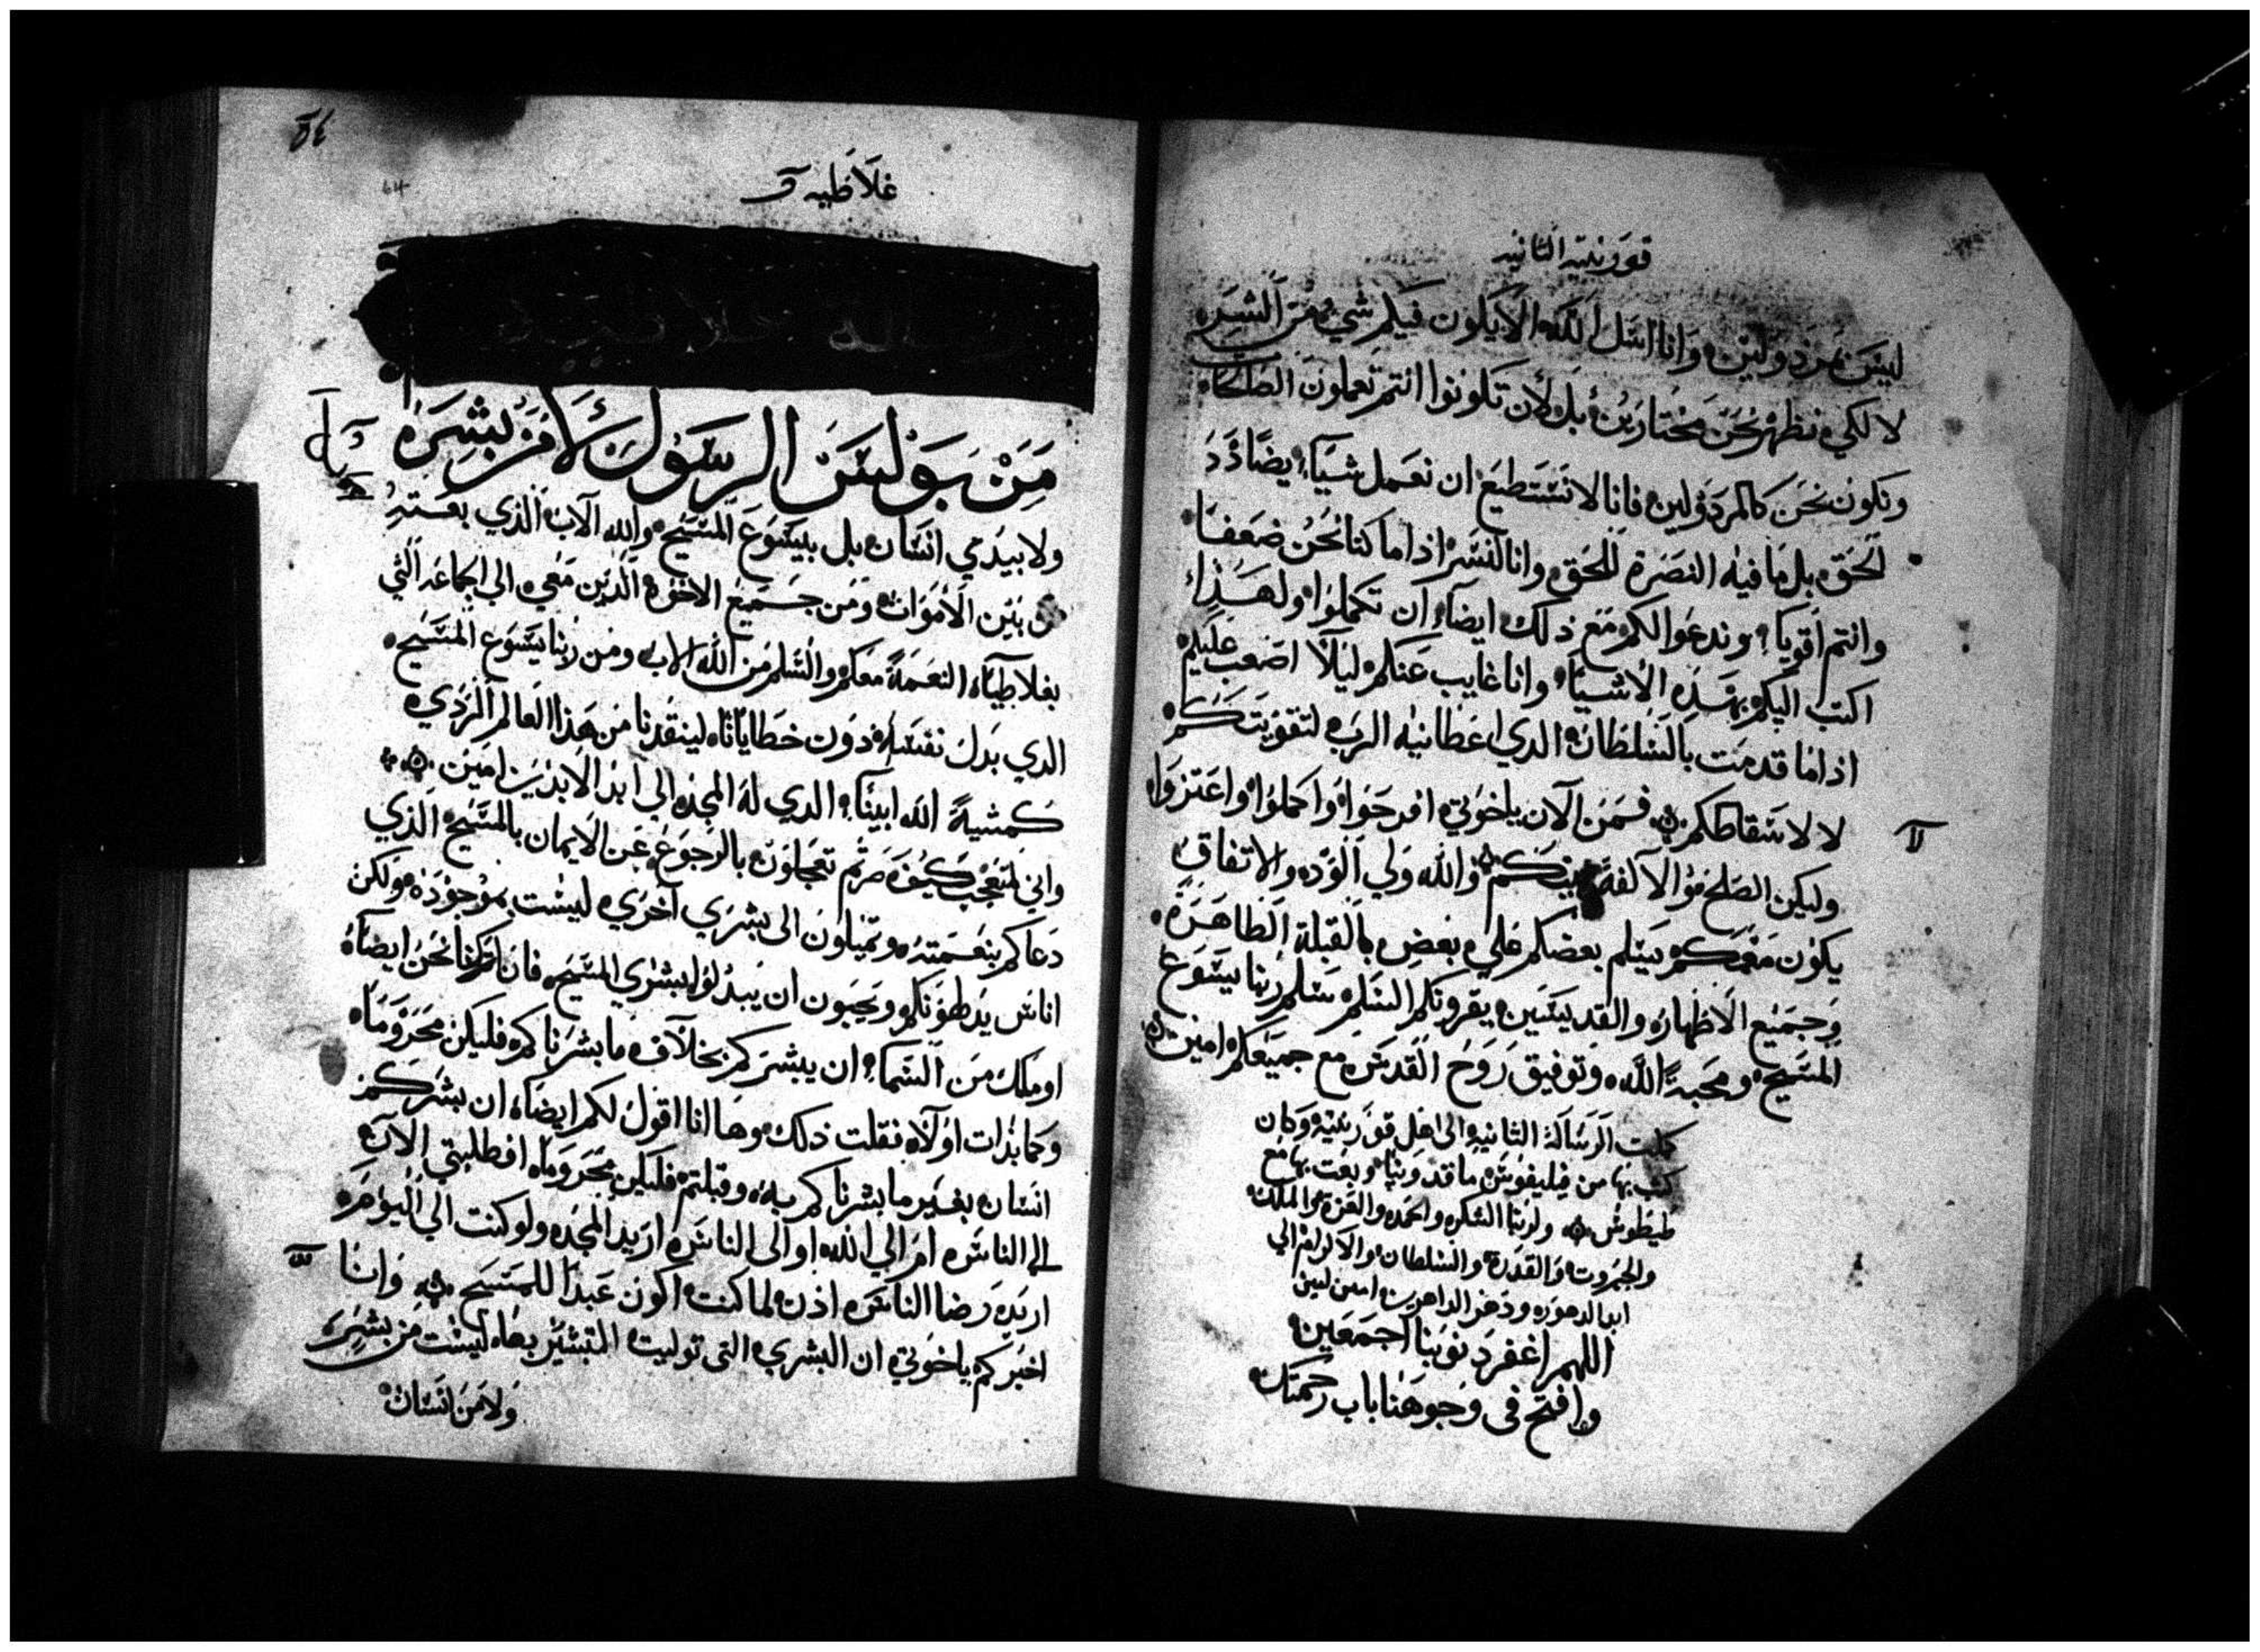 قورنتيه الثانيه
ليس بمردولين وانا اسل الله الا يكون فيكم شي من الشر
لا لكي نظهر نحن مختارين بل لان تكونوا انتم تعملون الصلحات
ونكون نحن كالمردولين فانا لا نستطيع ان نعمل شيا يضادد
الحق بل ما فيه النصرة للحق وانا لنسر اذا ما كنا نحن ضعفا
وانتم اقويا وندعوا لكم مع ذلك ايضا ان تكملوا ولهذا
اكتب اليكم بهذه الاشيا وانا غايب عنكم ليلا اصعب عليكم
اذا ما قدمت بالسلطان الدي اعطانيه الرب لتقويتكم
لا لاسقاطكم فمن الان ياخوتي افرحوا واكملوا واعتزوا
وليكن الصلح والالفة بينكم والله ولي الود والاتفاق
يكون معكم يسلم بعضكم على بعض بالقبلة الطاهرة
وجميع الاظهار والقديسين يقرونكم السلم سلم ربنا يسوع
المسيح ومحبة الله وتوفيق روح القدس مع جميعكم امين
كملت الرسالة الثانيه الى اهل قورنتيه وكان
كتب بها من فيليفوس ماقدونيا وبعت بها مع
طيطوس ولربنا الشكر والحمد والعزة والملك
والجبروت والقدرة والسلطان والاكرام الي
ابد الدهور ودهر الداهرين امين
اللهم اغفر ذنوبنا اجمعين
وافتح في وجوهنا باب رحمتك
٥٤
64
غلاطيه
من بولس الرسول لا من بشر
ولا بيدي انسان بل بيسوع المسيح والله الاب الذي بعته
من بين الاموات ومن جميع الاخوة الذين معي الى الجماعه التي
بغلاطيا النعمة معكم والسلم من الله الاب ومن ربنا يسوع المسيح
الدي بدل نفسه دون خطايانا لينقدنا من هذا العالم الردي
كمشية الله ابينا الدي له المجد الي ابد الابدين امين
واني لمتعجب كيف صرتم تعجلون بالرجوع عن الايمان بالمسيح الذي
دعاكم بنعمته وتميلون الى بشرى اخرى ليست بموجودة ولكن
اناس يدطونكم ويحبون ان يبدلوا بشرى المسيح فان كنا نحن ايضا
او ملك من السما ان يبشركم بخلاف ما بشرناكم فليكن محروما
وكما بدات اولا فقلت ذلك وها انا اقول لكم ايضا ان بشركم
انسان بغير ما بشرناكم به وقبلتم فليكن محروما افطلبتي الان
الى الناس ام الي الله او الى الناس اريد المجد ولو كنت الي اليوم
اريد رضا الناس اذن لما كنت اكون عبدا للمسيح وانا
اخبركم ياخوتي ان البشري التى توليت التبشير بها ليست من بشر
ولا من انسان